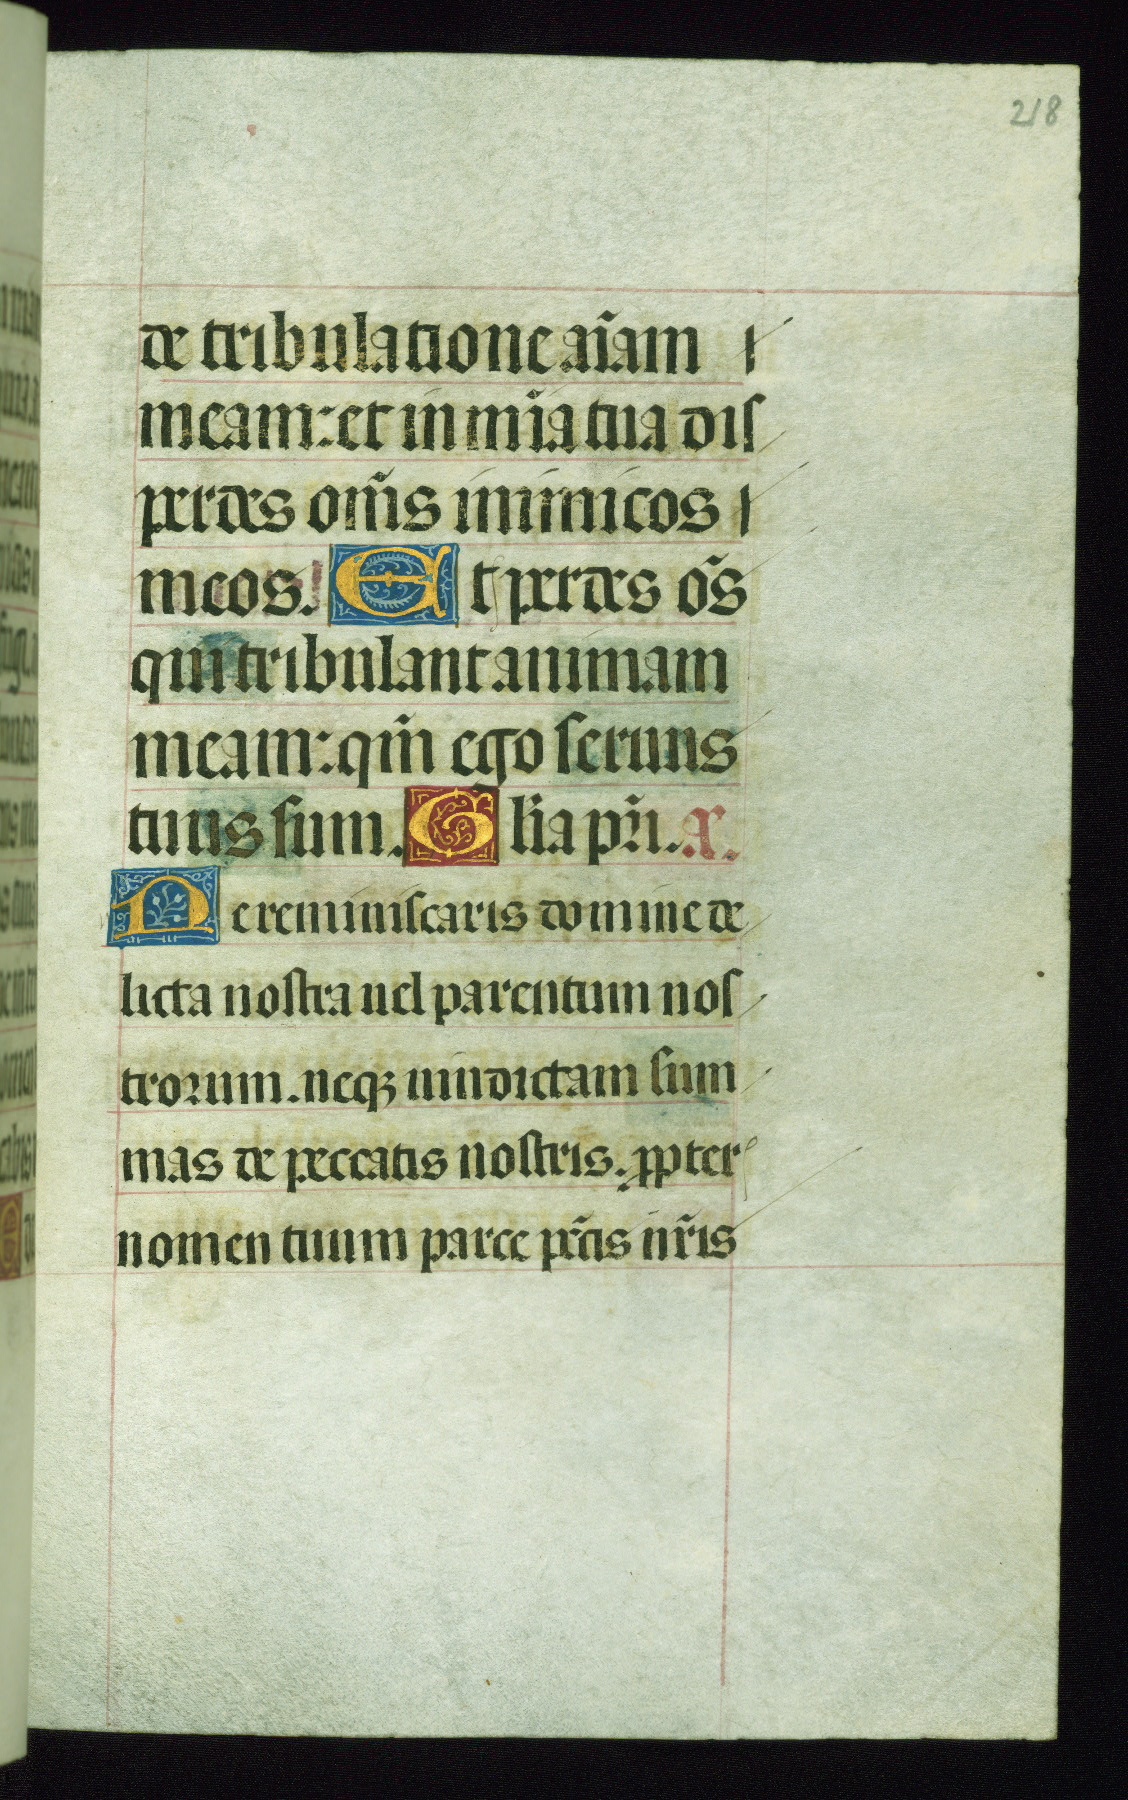 218
de tribulatione aīam
meam: et in mīa tua dis
perdes om̄s inimicos
meos. Et perdes os̄
qui tribulant animam
meam: qm̄ ego seruus
tuus sum. Glīa pr̄i. a.
Ne reminiscaris domine de
licta nostra uel parentum nos
trorum. neqꝫ uindictam sum
mas de peccatis nostris. ꝓpter
nomen tuum parce pc̄tis nr̄is